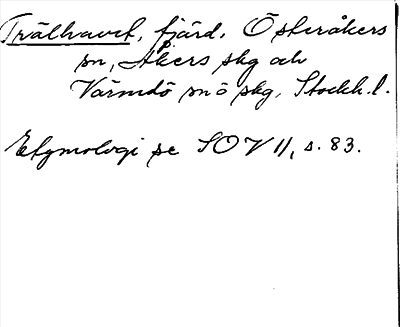 Trälhavet, fjärd. Österåkers
sn, Åkers skg och
Värmdö sn o skg, Stockh. l.
Etymologi se SOV 11, s. 83.